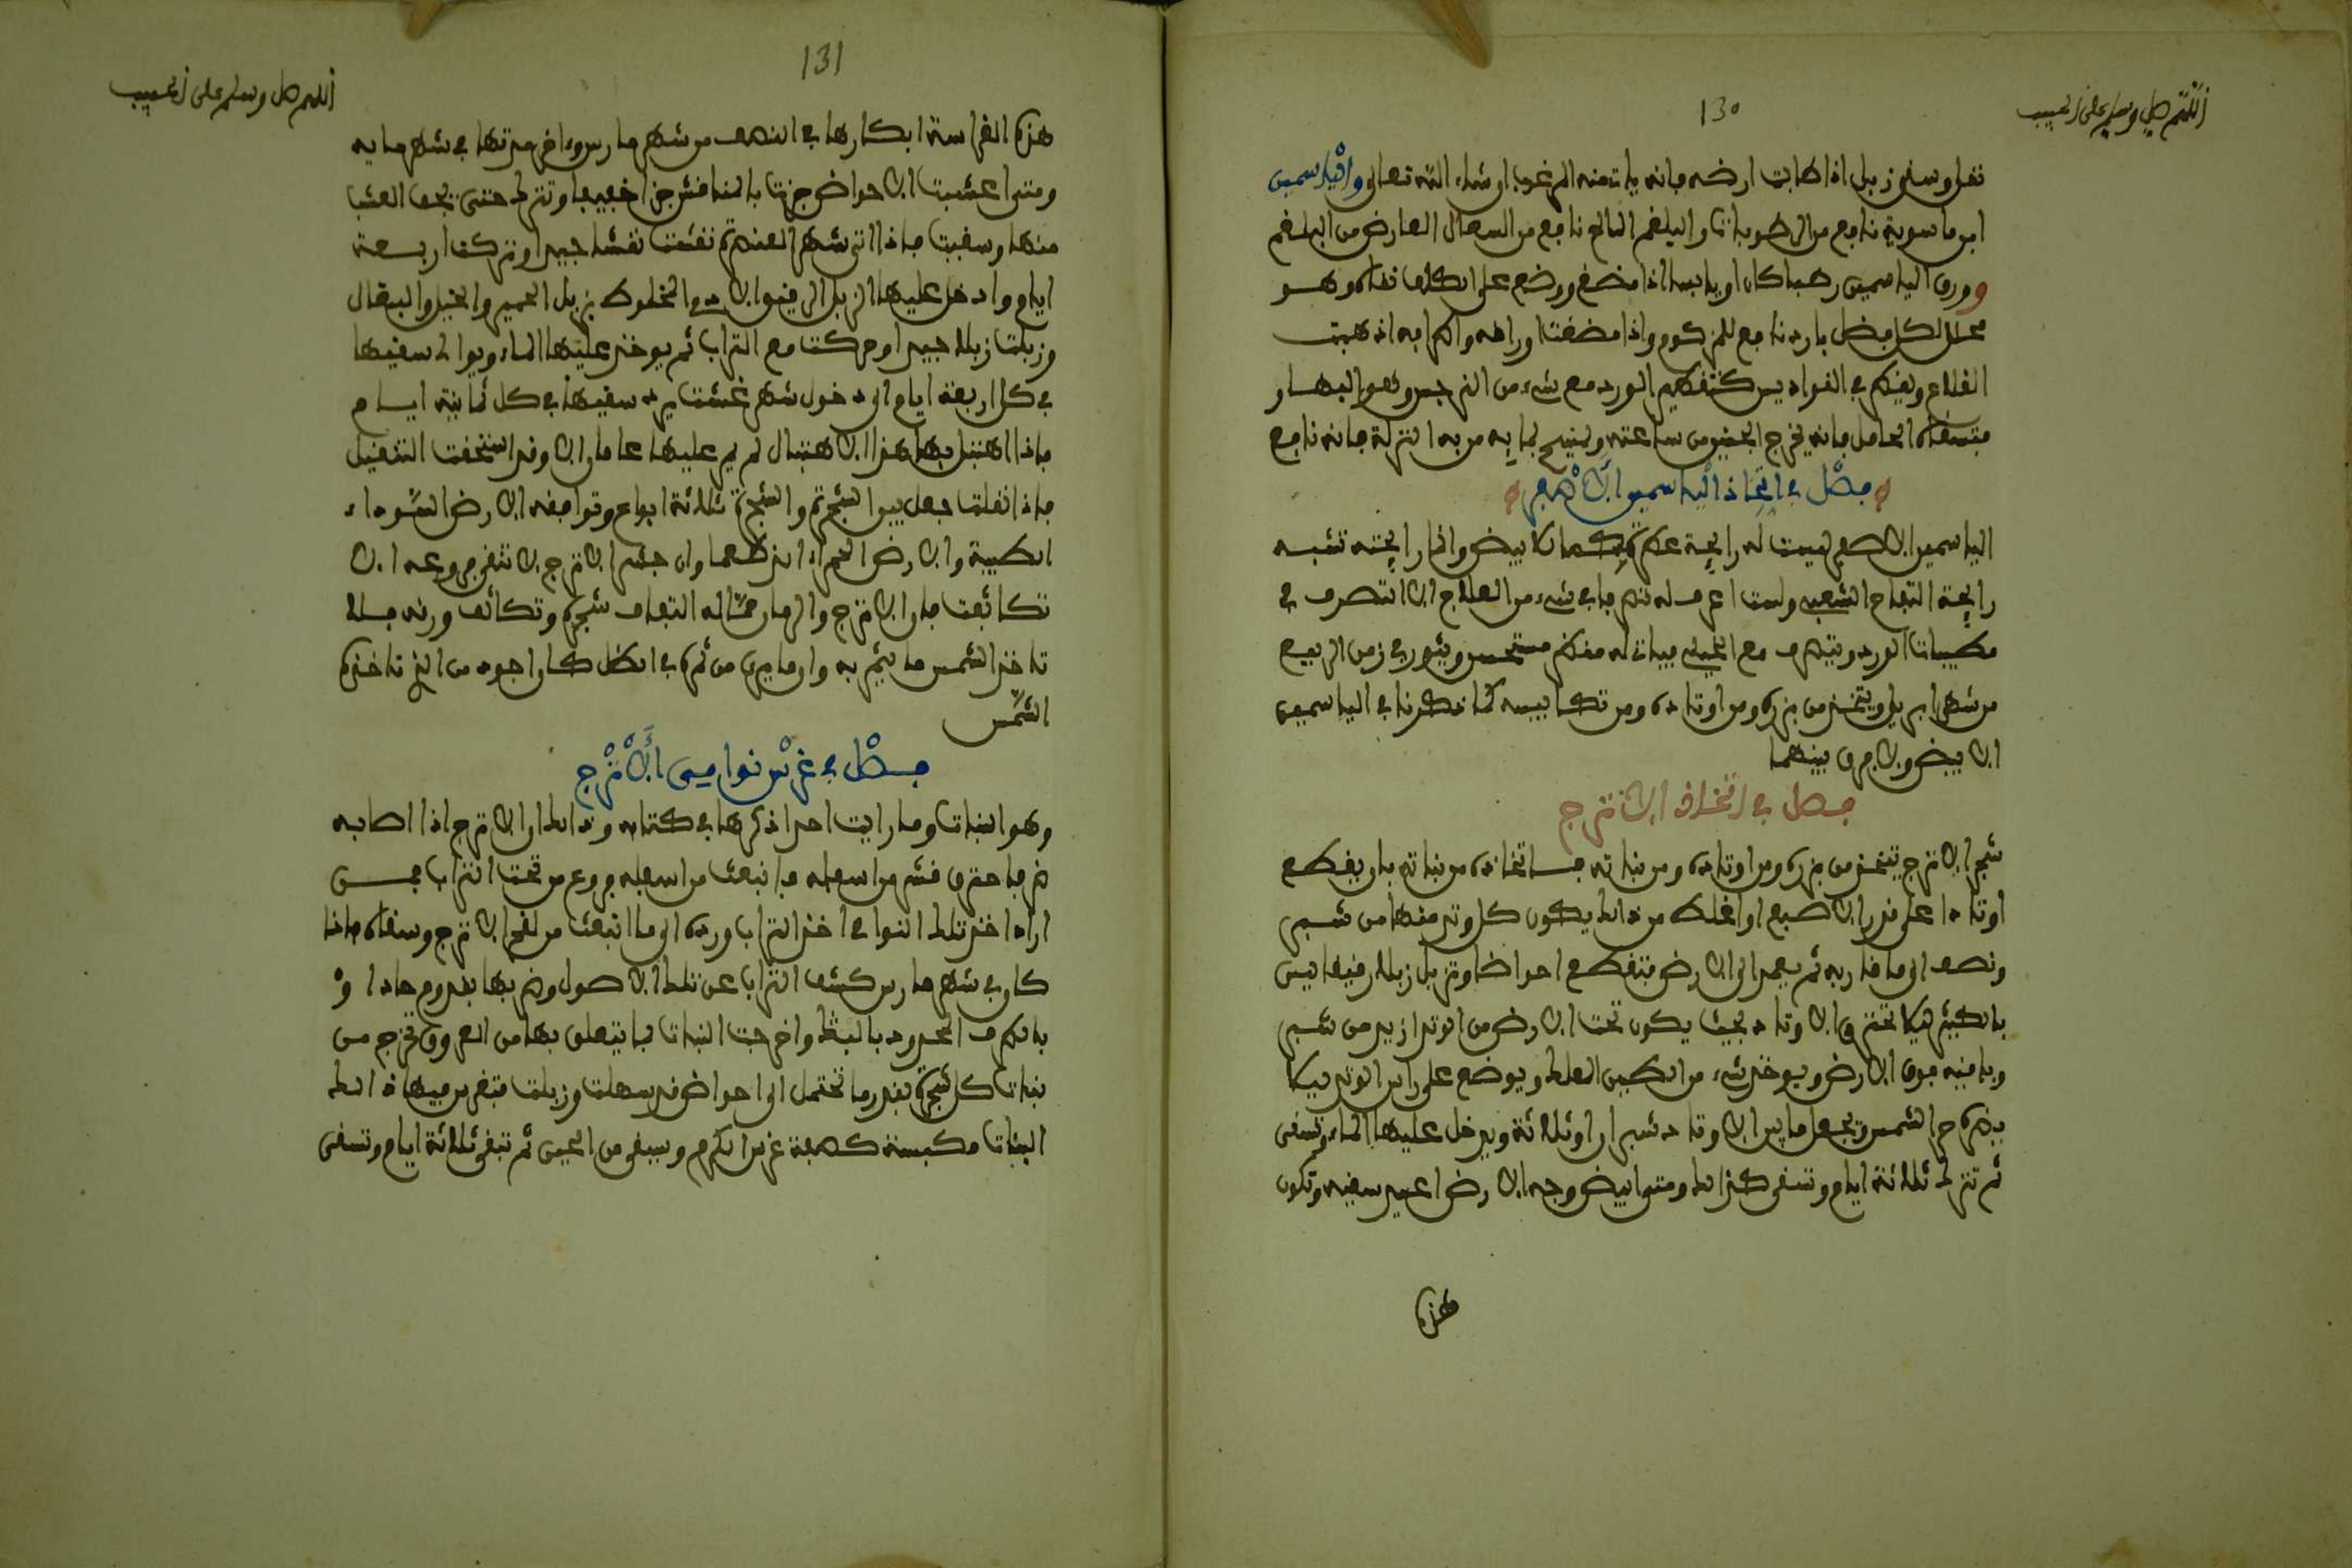 اللهم صل وسلم على الحبيب
130
نقل وسقى زبل اذا طابت ارضه فانه يات منه المرغوب ان شاء الله تعالى وقال سمين
ابن ماسوية نافع من الرطوبات والبلغم المالح نافع من السعال العارض من البلغم
وورق الياسمين رطبا كان او يابسا اذا مضغ ووضع على الكلف نقاه وهو
محلل لكل فضل بارد نافع للمزكوم واذا مضغت اوراقه واكرابه اذهبت
القلاع
فتسقاه الحامل فانه يخرج الجنين من ساعته
فصل في اتخاذ الياسمين الاصفر
الياسمين الاصفر ليست له رايحة عطرة كما للابيض وانما رايحته تشبه
رايحة التفاح الشعبي ولست اعرف له تصرفا في شيء من العلاج الا التصرف في
مطيبات الورد ويتصرف مع الخيلي فيات له منظر مستحسن وينور في زمن الربيع
من شهر ابريل ويتخذ من بزره ومن اوتاده ومن تكابيسه كما ذكرنا في الياسمين
الابيض ولا فرق بينهما
فصل في اتخاذ الاترج
شجر الاترج يتخذ من بزره ومن اوتاده ومن نباته فاتخاذه من نباته بان يقطع
اوتادا على قدر الاصبع او اغلظ من ذلك يكون كل وتد منها من شبر
ونصف الى ما قاربه ثم يعمد الى الارض فتقطع احواضا وتزبل زبلا رقيقا ليس
بالكثير ليلا تحترق الاوتاد بحيث يكون تحت الارض من الوتد ازيد من شبر
وباقيه فوق الارض ويوخذ شيء من الطين العلك ويوضع على راس الوتد ليلا
يضره حر الشمس ويجعل ما بين الاوتاد شبرا او ثلاثة ويدخل عليها الماء وتسقى
ثم تترك ثلاثة ايام وتسقى كذلك ومتى ابيض وجه الارض اعيد سقيه وتكون
هذه
اللهم صل وسلم على الحبيب
131
هذه الغراسة ابكارها في النصف من شهر مارس واخر مدتها في شهر مايه
ومتى اعشبت الاحواض جزت بالمنافش جزا خفيفا وتترك حتى يجف العشب
منها وسقيت فاذا اتى شهر العنصرة نقشت نقشا جيدا وتركت اربعة
ايام وادخل عليها الزبل الرقيق الادمي المخلوط بزبل الحمير والخيل والبغال
وزبلت زبلا جيدا وحركت مع التراب ثم يوخذ عليها الماء ويوالى سقيها
في كل اربعة ايام الى دخول شهر غشت يرد سقيها في كل ثمانية ايام
فاذا اهتبل بها هذا الاهتبال لم يمر عليها عاما الا وقد استحقت التنقيل
فاذا نقلت جعل بين الشجرة والشجرة ثلاثة ابواع وتوافقه الارض السوداء
الطيبة والارض الحمراء وان جنس الاترج لا تتفرج فروعه الا
تكاثفت فان الاترج والرمان مما له التفاف شجره وتكاثف ورقه فلا
تاخذ الشمس ما يثمر به وان ما يبرى من ثمره في الظل كان اجود من الذي تاخذه
الشمس
فصل في غرس نوامي الاترج
وهو النبات وما رايت احدا ذكرها في كتابه وذلك ان الاترج اذا اصابه
ضر فاحترق قشر من اسفله فانبعث من اسفله فروع من تحت التراب فمن
اراد اخذ تلك النوامي اخذ التراب ورده الى ما انبعث من لقح الاترج وسقاه فاذا
كان في شهر مارس كشف التراب عن تلك الاصول وضربها بقدوم حاد او
بالطرف المحدود بالبتك واخرجت النبات بما يتعلق بها من العروق تخرج من
نبات كل شجرة بقدر ما تحتمل الى احواض قد سهلت وزبلت فتغرس فيها ذلك
النبات مكبسة كصفة غرس الكرم وسقي من الحين ثم تبقى ثلاثة ايام وتسقى